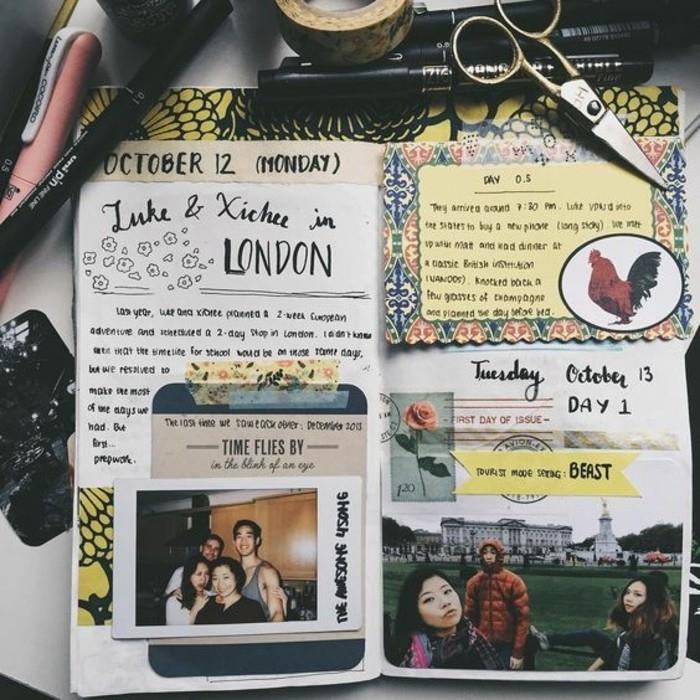 OCTOBER 12 (MONDAY)
Luke & Xichee in
LONDON
Last year, Luke and Xichee planned a 2-week European
adventure and scheduled a 2-day stop in London. I didn't know
that the timeline for school would be on those same days,
but we resolved to
make the most
of the days we
had. But
first...
prepwork.
The last time we saw each other: December 2013
TIME FLIES BY
in the blink of an eye
THE AWESOME 4SOME
DAY 0.5
They arrived around 7:30 pm. Luke VPN'd into
the states to buy a new phone (long story). We met
up with Matt and had dinner at
a classic British institution
(NANDOS). Knocked back a
few glasses of champagne
and planned the day before bed.
Tuesday October 13
DAY 1
FIRST DAY OF ISSUE
AVION
120
TOURIST MODE SETTING: BEAST
uni pin FINE LINE
0.1
0.5
0.8